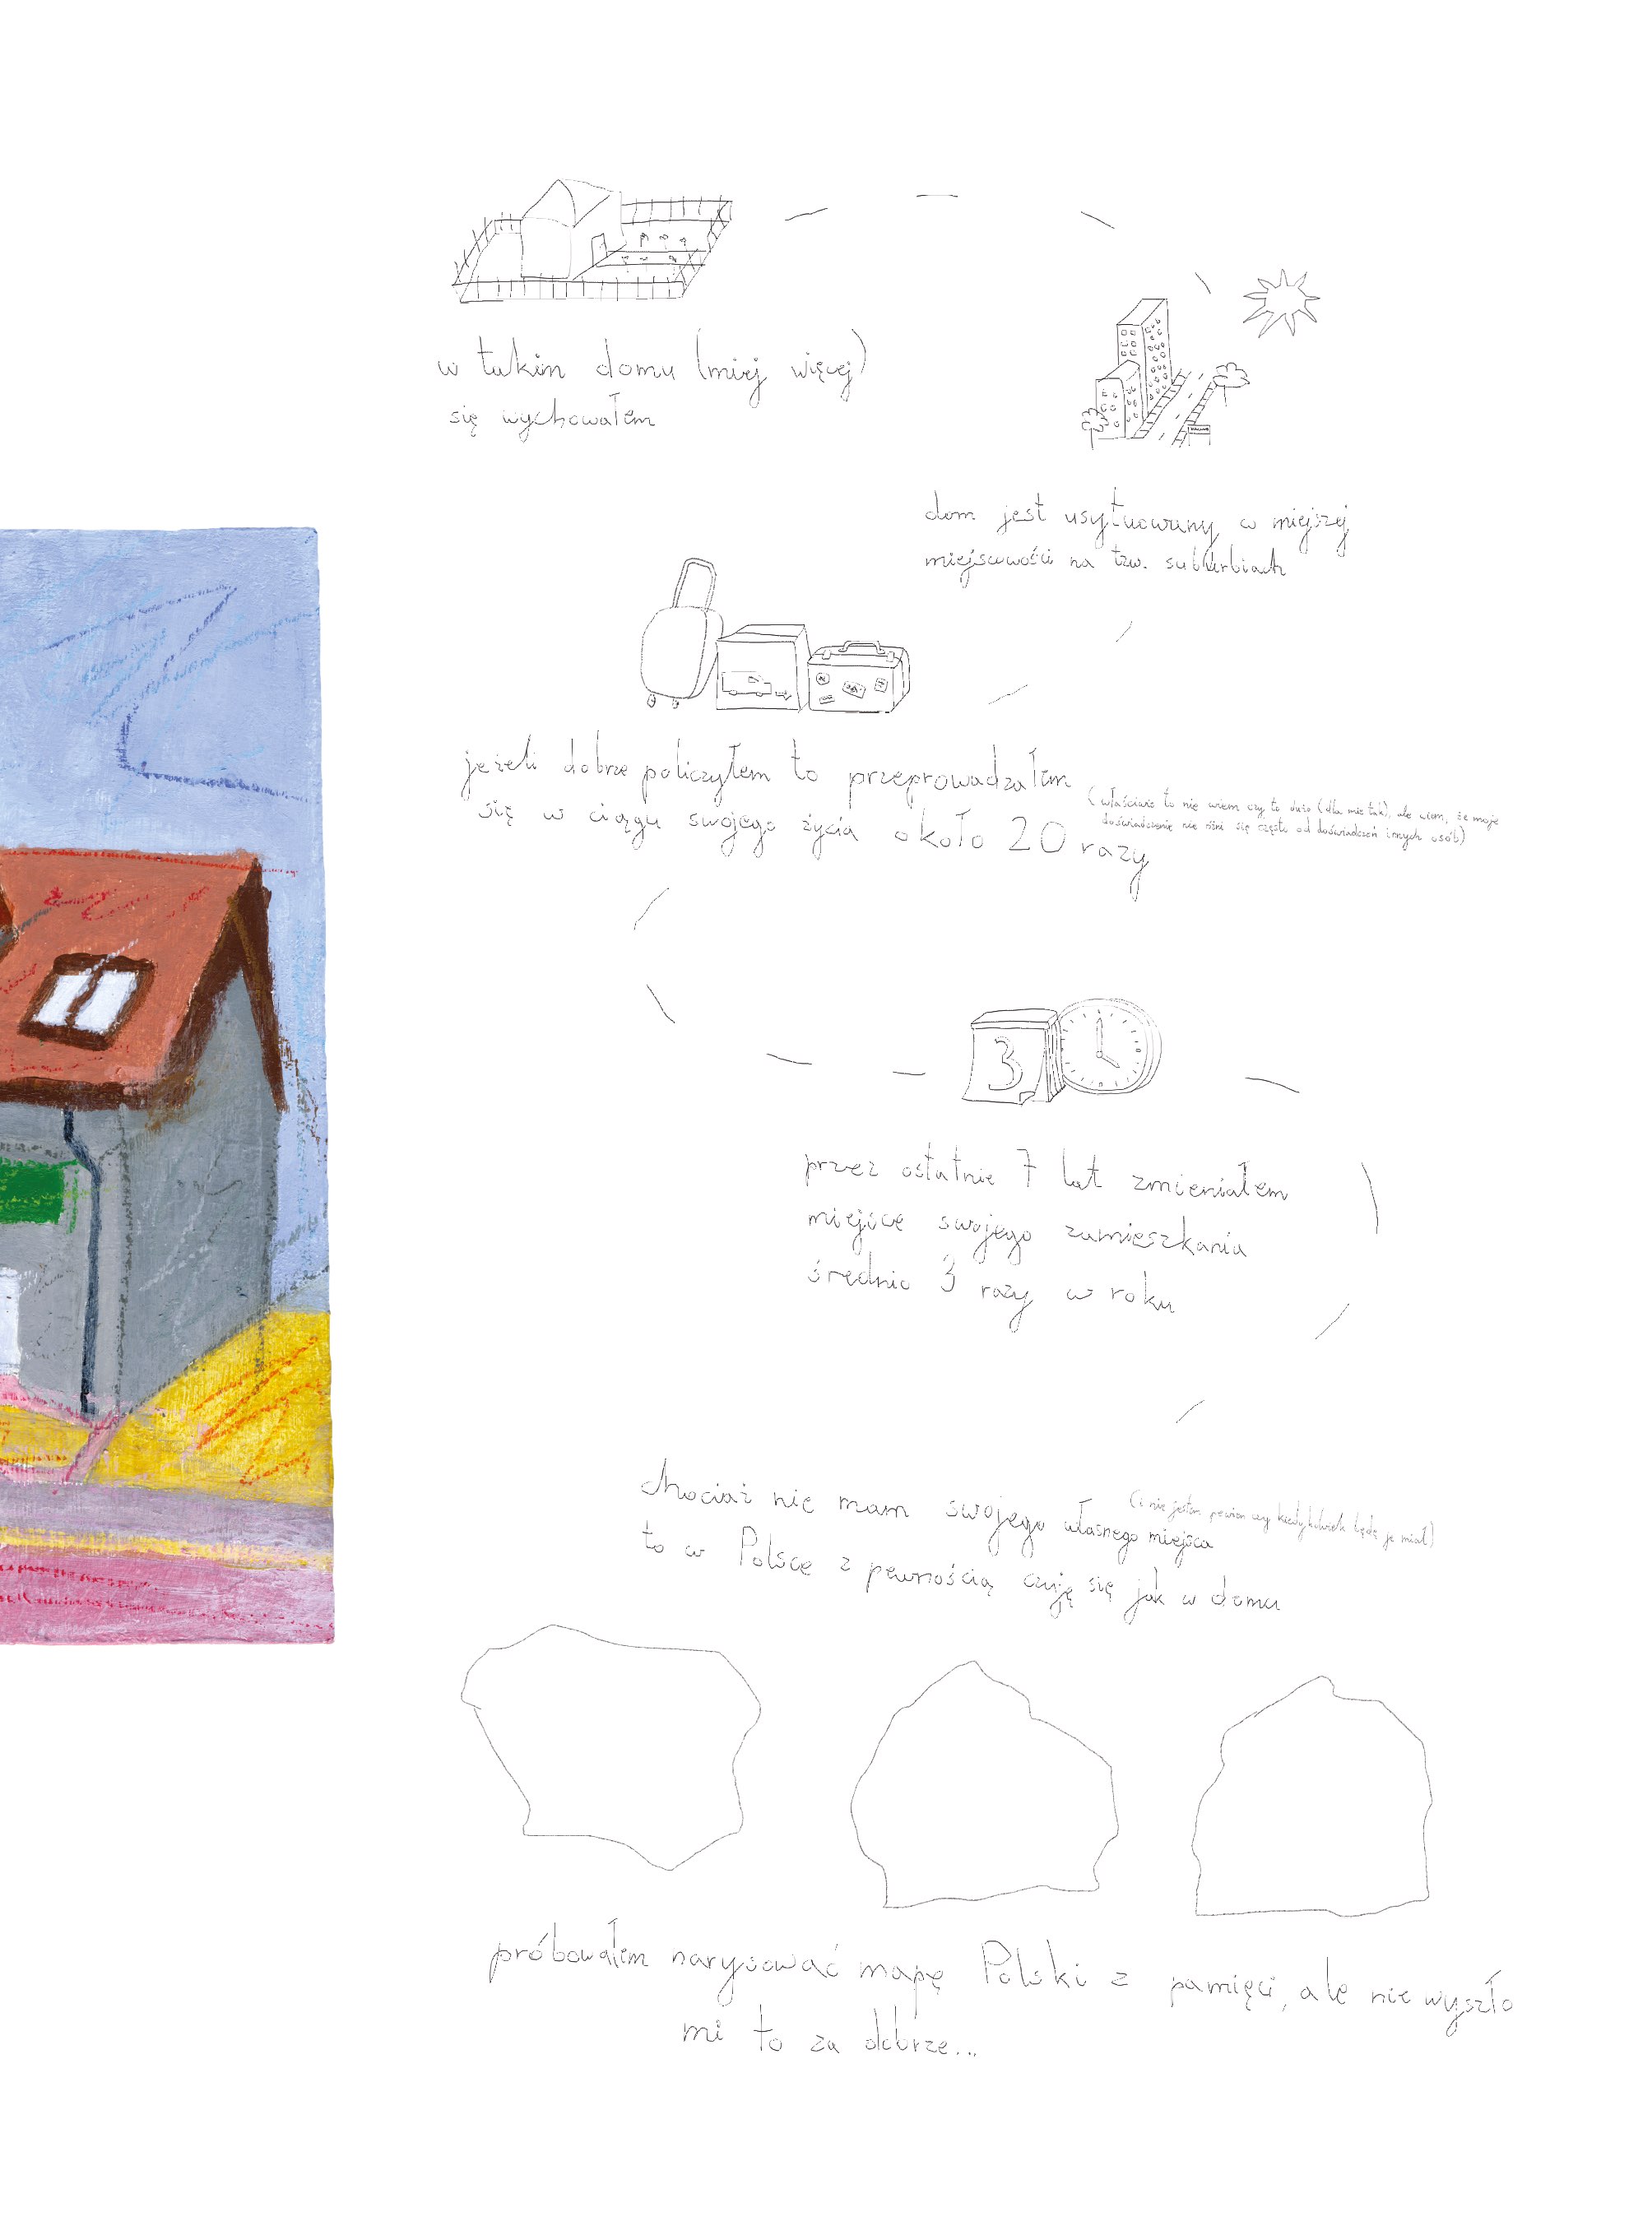 w takim domu (mniej więcej)
się wychowałem
dom jest usytuowany w miejszej
miejscowości na tzw. suburbiach
3
jeżeli dobrze policzyłem to przeprowadzałem
się w ciągu swojego życia około 20 razy
(właściwie to nie wiem czy to dużo (dla mnie tak), ale wiem, że moje
doświadczenie nie różni się często od doświadczeń innych osób)
przez ostatnie 7 lat zmieniałem
miejsce swojego zamieszkania
średnio 3 razy w roku
chociaż nie mam swojego własnego miejsca
(i nie jestem pewien czy kiedykolwiek będę je miał)
to w Polsce z pewnością czuję się jak w domu
próbowałem narysować mapę Polski z pamięci, ale nie wyszło
mi to za dobrze...